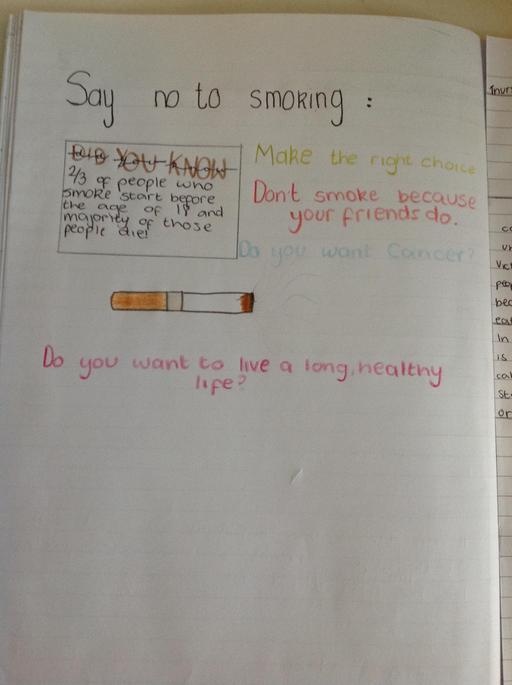 Say no to smoking :
DID YOU KNOW
2/3 of people who
smoke start before
the age of 18 and
majority of those
people die!
Make the right choice
Dont smoke because
your friends do.
Do you want Cancer?
Do you want to live a long, healthy
life?